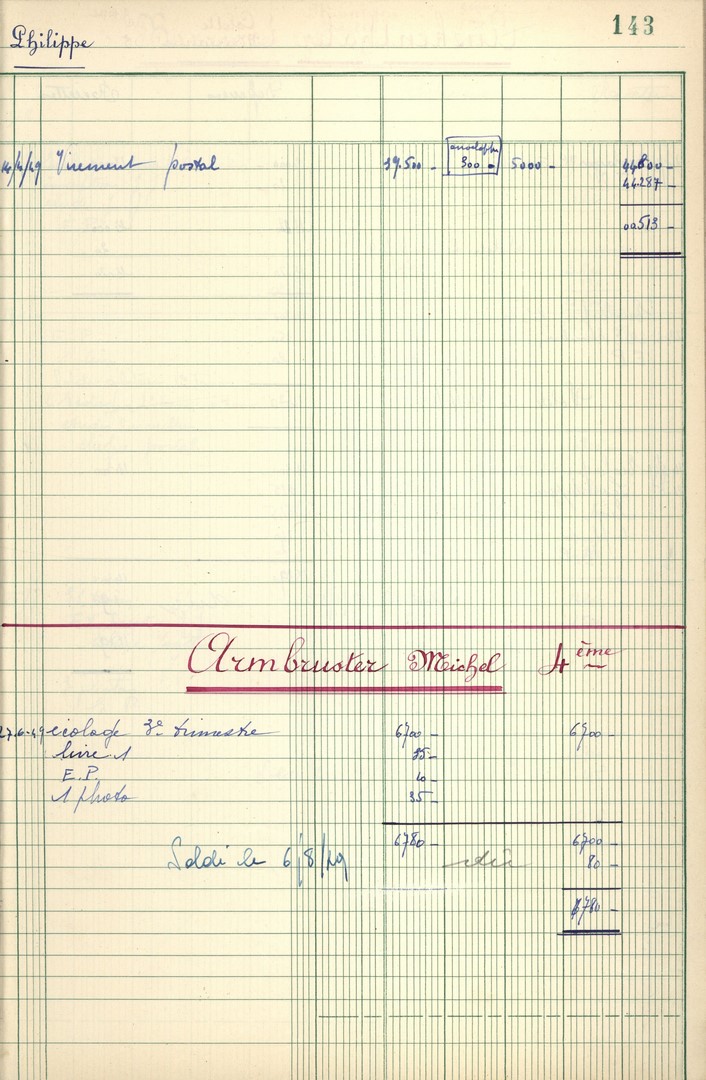 143
Philippe
14/4/49 Virement postal 39.500 - enveloppe 300 - 5000 - 44800 -
44.287 -
00513 -
Armbruster Michel 4ème
27.6.49 écolage 3e trimestre 6700 - 6700 -
livre 1 35 -
E.P. 10 -
1 photo 35 -
6780 - 6700 -
Soldé le 6/8/49 dû 80 -
6780 -